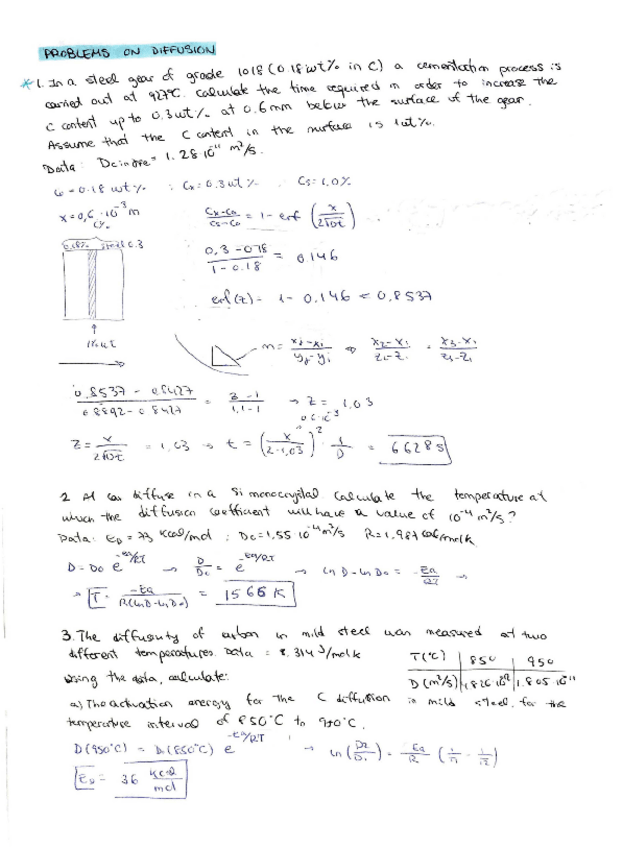 PROBLEMS ON DIFFUSION
* 1. In a steel gear of grade 1018 (0.18 wt% in C) a cementation process is
carried out at 927ºC. Calculate the time required in order to increase the
C content up to 0.3 wt% at 0.6 mm below the surface of the gear.
Assume that the C content in the surface is 1 wt%.
Data: 1.28 10⁻¹¹ m²/s.
C₀ = 0.18 wt% ; Cx = 0.3 wt% ; Cs = 1,0%
x = 0,6 · 10⁻³ m
Cx-C₀ / Cs-C₀ = 1 - erf (x / 2√Dt)
0,3 - 0,18 / 1 - 0.18 = 0,146
erf(z) = 1 - 0,146 = 0,8537
0,8537 - 0,8427 / 0,8802 - 0,8427 = z - 1 / 1,1 - 1 → z = 1,03
0,6·10⁻³
z = x / 2√Dt = 1,03 → t = (x / 2·1,03)² · 1/D = 6628 s
2. Al can diffuse in a Si monocrystal. Calculate the temperature at
which the diffusion coefficient will have a value of 10⁻¹⁴ m²/s?
Data: = 73 kcal/mol ; D₀ = 1,55 10⁻⁴ m²/s R = 1,987 cal/molK
D = D₀ e^-Ea/RT → D/D₀ = e^-Ea/RT → ln D - ln D₀ = -Ea/RT →
→ T = -Ea / R(ln D - ln D₀) = 1566 K
3. The diffusivity of carbon in mild steel was measured at two
different temperatures. Data = 8,314 J/molK
T(ºC) | 850 | 950
Using the data, calculate:
D (m²/s)
a) The activation energy for the C diffusion in mild steel, for the
temperature interval of 850ºC to 950ºC.
D(950ºC) = D(850ºC) e^-Ea/RT → ln (D₂/D₁) = Ea/R (1/T₁ - 1/T₂)
= 36 kcal/mol